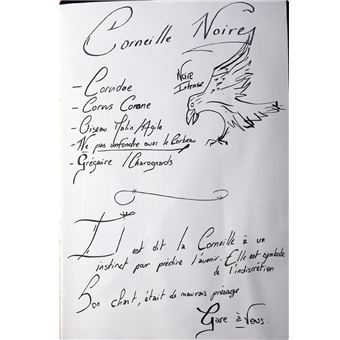 Corneille Noire
Noire
Intense
- Corvidae
- Corvus Corone
- Oiseau Malin/Agile
- Ne pas confondre avec le Corbeau
- Grégaire / Charognards
Il est dit la Corneille à un
instinct pour prédire l'avenir. Elle est symbole
de l'indiscrétion
Son chant, était de mauvais présage
Gare à Vous.